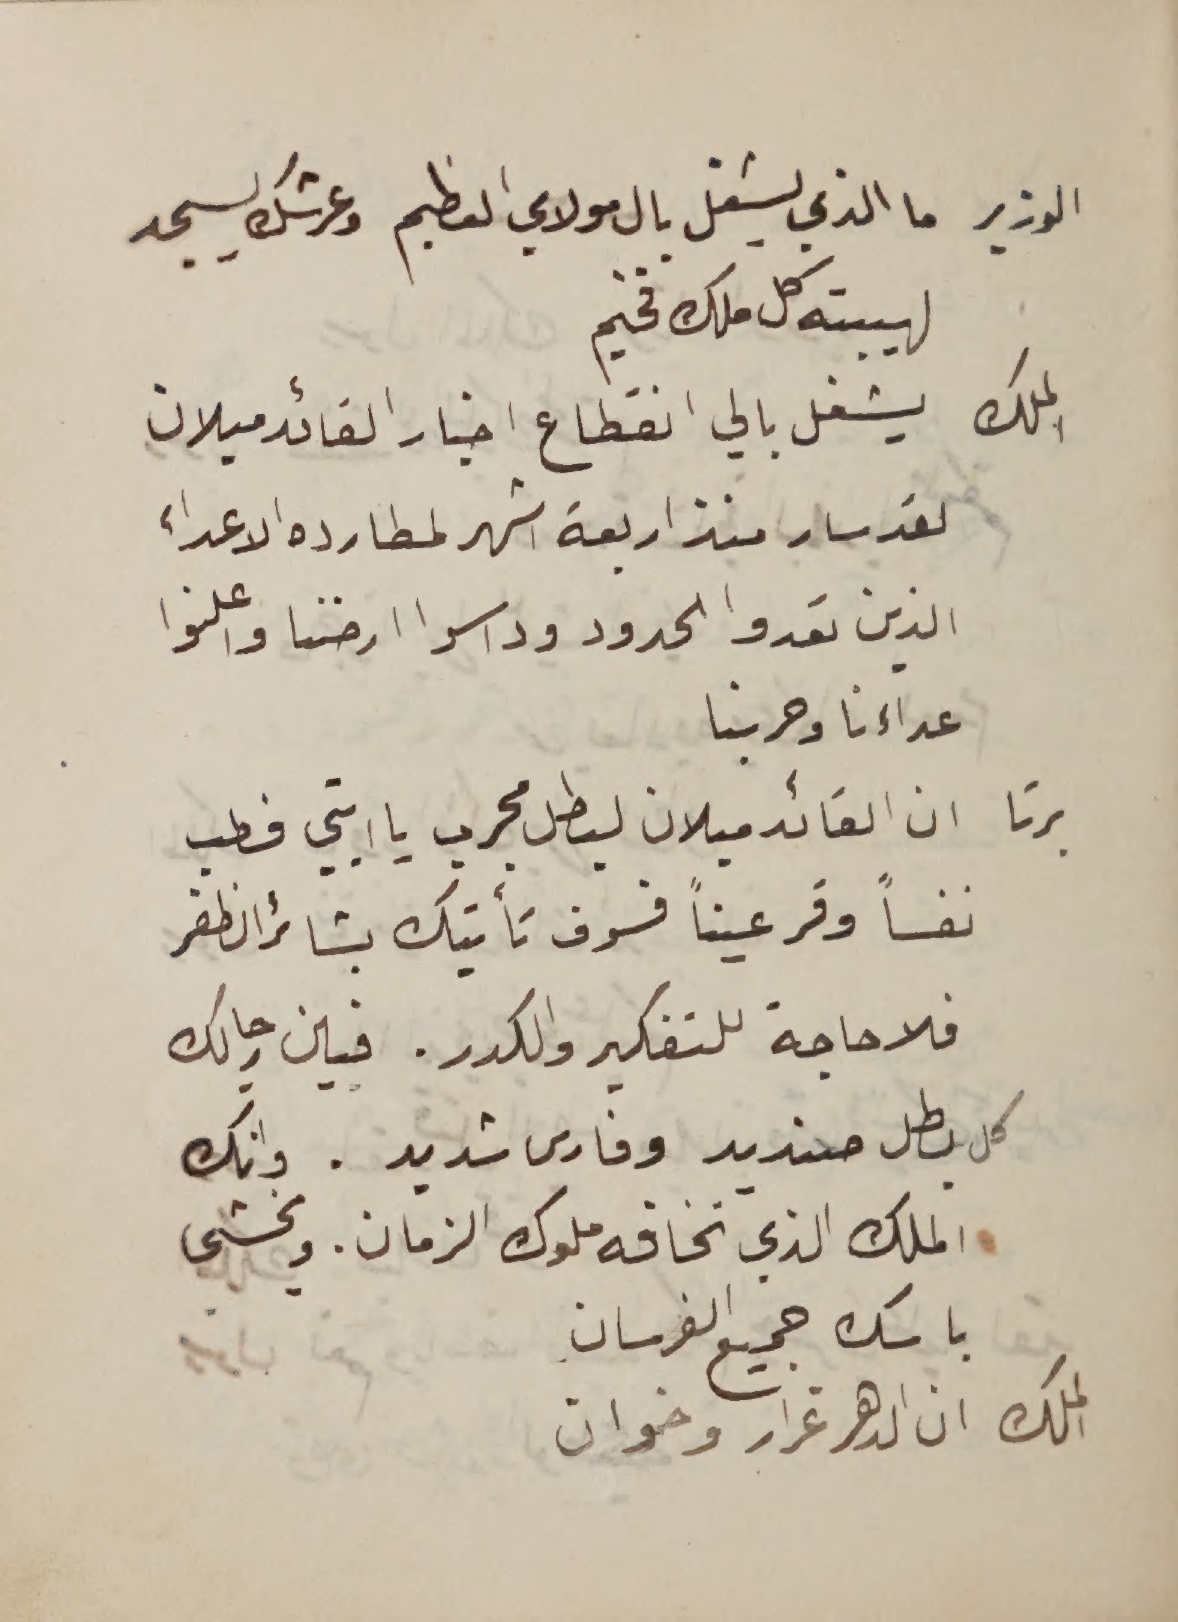 الوزير ما الذي يشغل بال مولاي العظيم وعرشك يسجد
لهيبته كل ملك فخيم
الملك يشغل بالي انقطاع اخبار القائد ميلان
لقد سار منذ اربعة اشهر لمطارده الاعداء
الذين تعدوا الحدود وداسوا ارضنا واعلنوا
عداءنا وحربنا
برتا ان القائد ميلان لبطل مجرب يا ابتي فطب
نفساً وقر عيناً فسوف تأتيك بشائر الظفر
فلا حاجة للتفكير والكدر . فبين رجالك
كل بطل صنديد وفارس شديد . وانك
الملك الذي تخافه ملوك الزمان . ويخشى
باسك جميع الفرسان
الملك ان الدهر غرار وخوان